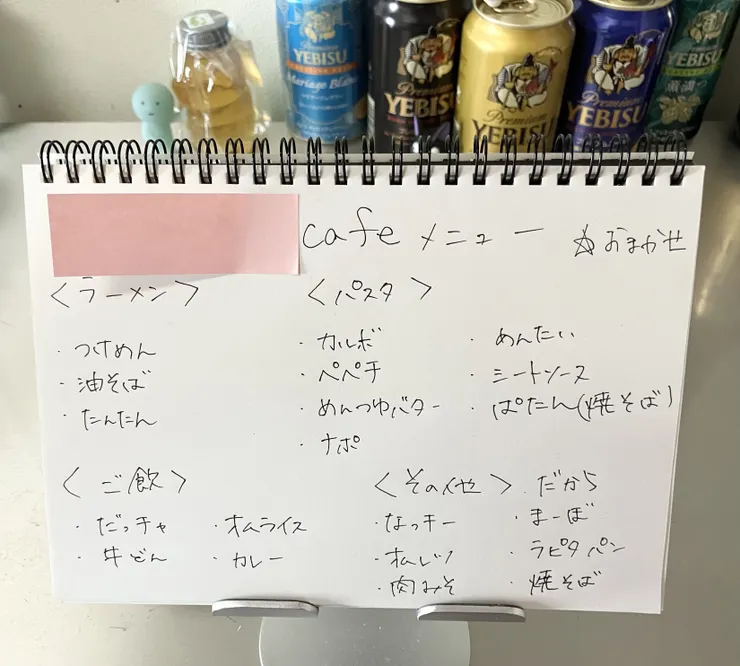 Premium
YEBISU
Mariage Blanc
Premium
YEBISU
Premium
YEBISU
Premium
YEBISU
YEBISU
cafe メニュー ☆おまかせ
〈ラーメン〉
・つけめん
・油そば
・たんたん
〈パスタ〉
・カルボ
・ペペチ
・めんつゆバター
・ナポ
・めんたい
・ミートソース
・ぱたん(焼そば)
〈ご飯〉
・だっチャ
・牛どん
・オムライス
・カレー
〈その他〉
・なっキー
・オムレツ
・肉みそ
・だから
・まーぼ
・ラピタパン
・焼そば